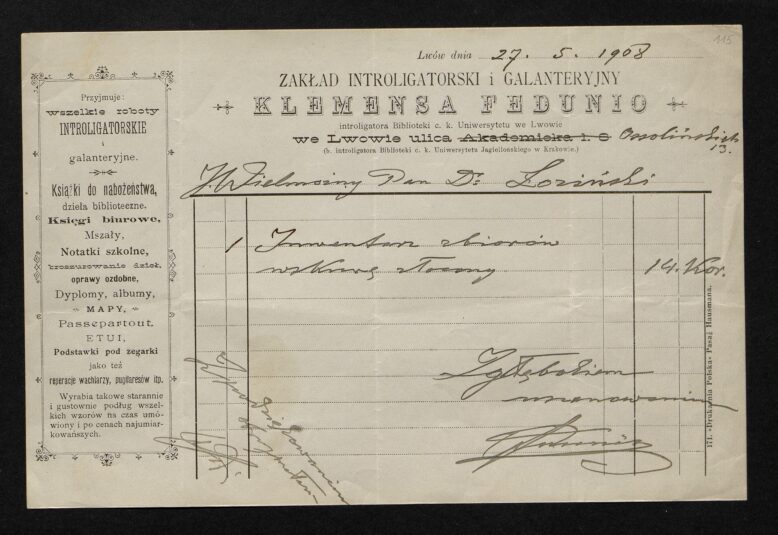 115
Lwów dnia 27. 5. 1908
ZAKŁAD INTROLIGATORSKI i GALANTERYJNY
KLEMENSA FEDUNIO
introligatora Biblioteki c. k. Uniwersytetu we Lwowie
we Lwowie ulica Akademicka l. 8 Ossolińskich
13.
(b. introligatora Biblioteki c. k. Uniwersytetu Jagiellońskiego w Krakowie.)
Przyjmuje:
wszelkie roboty
INTROLIGATORSKIE
i
galanteryjne.
Książki do nabożeństwa,
dzieła biblioteczne,
Księgi biurowe,
Mszały,
Notatki szkolne,
broszurowanie dzieł,
oprawy ozdobne,
Dyplomy, albumy,
MAPY,
Passepartout,
ETUI,
Podstawki pod zegarki
jako też
reperacje wachlarzy, pugilaresów itp.
Wyrabia takowe starannie
i gustownie podług wszel-
kich wzorów na czas umó-
wiony i po cenach najumiar-
kowańszych.
J. Wielmożny Pan Dr. Łoziński
1 Inwentarz zbiorów
w skórę złocony 14. Kor.
Z głębokiem
uszanowaniem
Z podziękowaniem
otrzymałem
171. «Drukarnia Polska» Pasaż Hausmana.